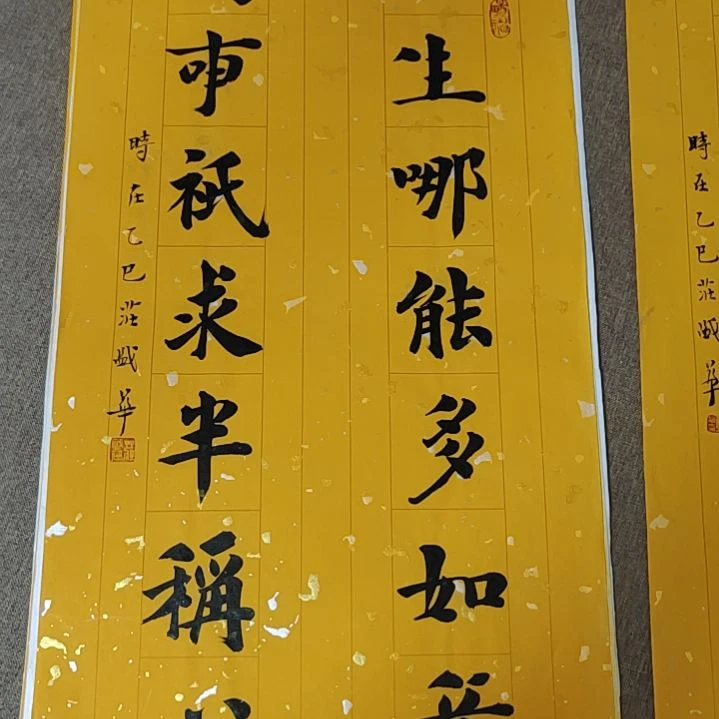 時在乙巳莊華
生哪能多如意
事祇求半稱
時在乙巳莊華